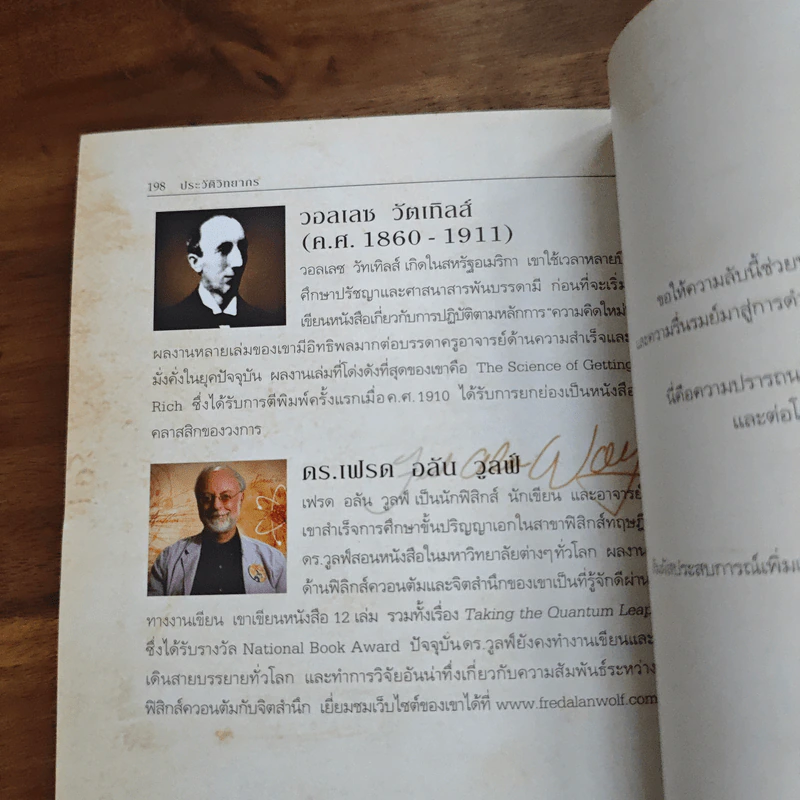 198 ประวัติวิทยากร
วอลเลซ วัตเทิลส์
(ค.ศ. 1860 - 1911)
วอลเลซ วัทเทิลส์ เกิดในสหรัฐอเมริกา เขาใช้เวลาหลายปี
ศึกษาปรัชญาและศาสนาสารพันบรรดามี ก่อนที่จะเริ่ม
เขียนหนังสือเกี่ยวกับการปฏิบัติตามหลักการ "ความคิดใหม่"
ผลงานหลายเล่มของเขามีอิทธิพลมากต่อบรรดาครูอาจารย์ด้านความสำเร็จและ
มั่งคั่งในยุคปัจจุบัน ผลงานเล่มที่โด่งดังที่สุดของเขาคือ The Science of Getting
Rich ซึ่งได้รับการตีพิมพ์ครั้งแรกเมื่อ ค.ศ. 1910 ได้รับการยกย่องเป็นหนังสือ
คลาสสิกของวงการ
ดร.เฟรด อลัน วูลฟ์
เฟรด อลัน วูลฟ์ เป็นนักฟิสิกส์ นักเขียน และอาจารย์
เขาสำเร็จการศึกษาขั้นปริญญาเอกในสาขาฟิสิกส์ทฤษฎี
ดร.วูลฟ์สอนหนังสือในมหาวิทยาลัยต่างๆ ทั่วโลก ผลงาน
ด้านฟิสิกส์ควอนตัมและจิตสำนึกของเขาเป็นที่รู้จักดีผ่าน
ทางงานเขียน เขาเขียนหนังสือ 12 เล่ม รวมทั้งเรื่อง Taking the Quantum Leap
ซึ่งได้รับรางวัล National Book Award ปัจจุบัน ดร.วูลฟ์ยังคงทำงานเขียนและ
เดินสายบรรยายทั่วโลก และทำการวิจัยอันน่าทึ่งเกี่ยวกับความสัมพันธ์ระหว่าง
ฟิสิกส์ควอนตัมกับจิตสำนึก เยี่ยมชมเว็บไซต์ของเขาได้ที่ www.fredalanwolf.com
ขอให้ความลับนี้ช่วย
และความรื่นรมย์มาสู่การดำ
นี่คือความปรารถน
และต่อโ
ประสบการณ์เพิ่มเ